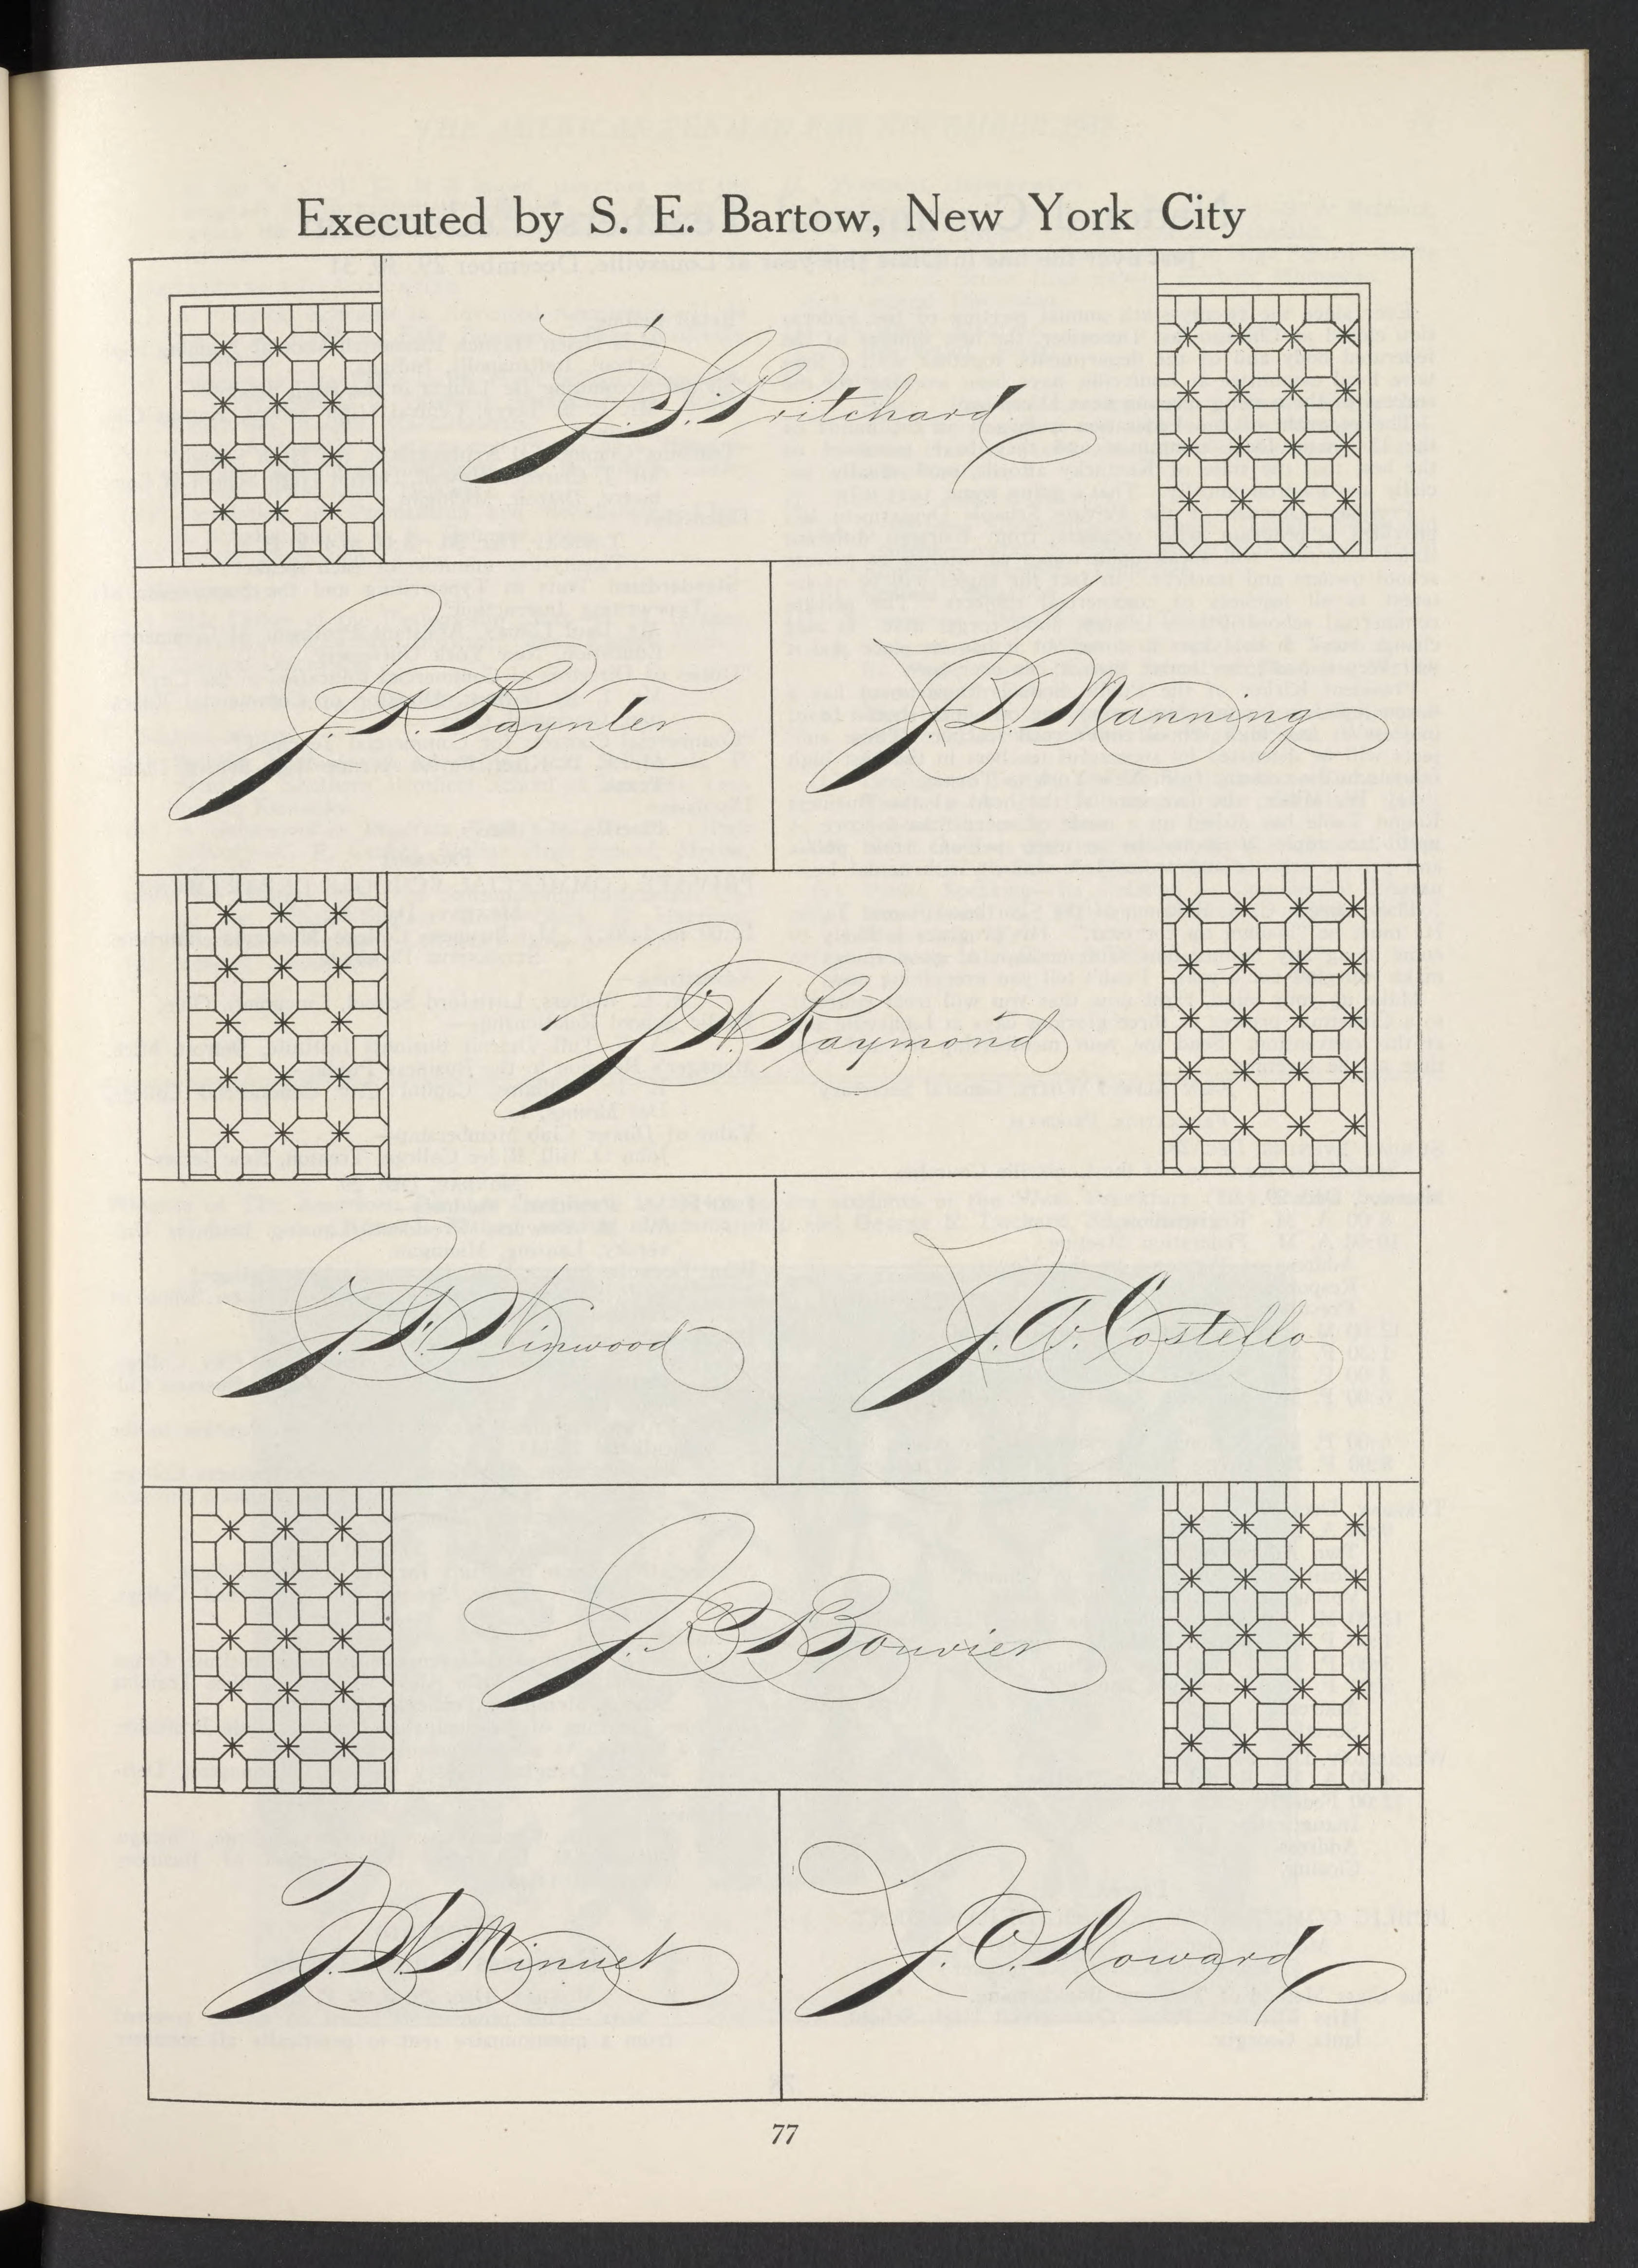 Executed by S. E. Bartow, New York City
J. S. Pritchard
J. K. Paynter
J. D. Manning
J. W. Raymond
J. F. Winwood
J. A. Costello
J. R. Bouvier
J. W. Minuet
J. O. Howard
77